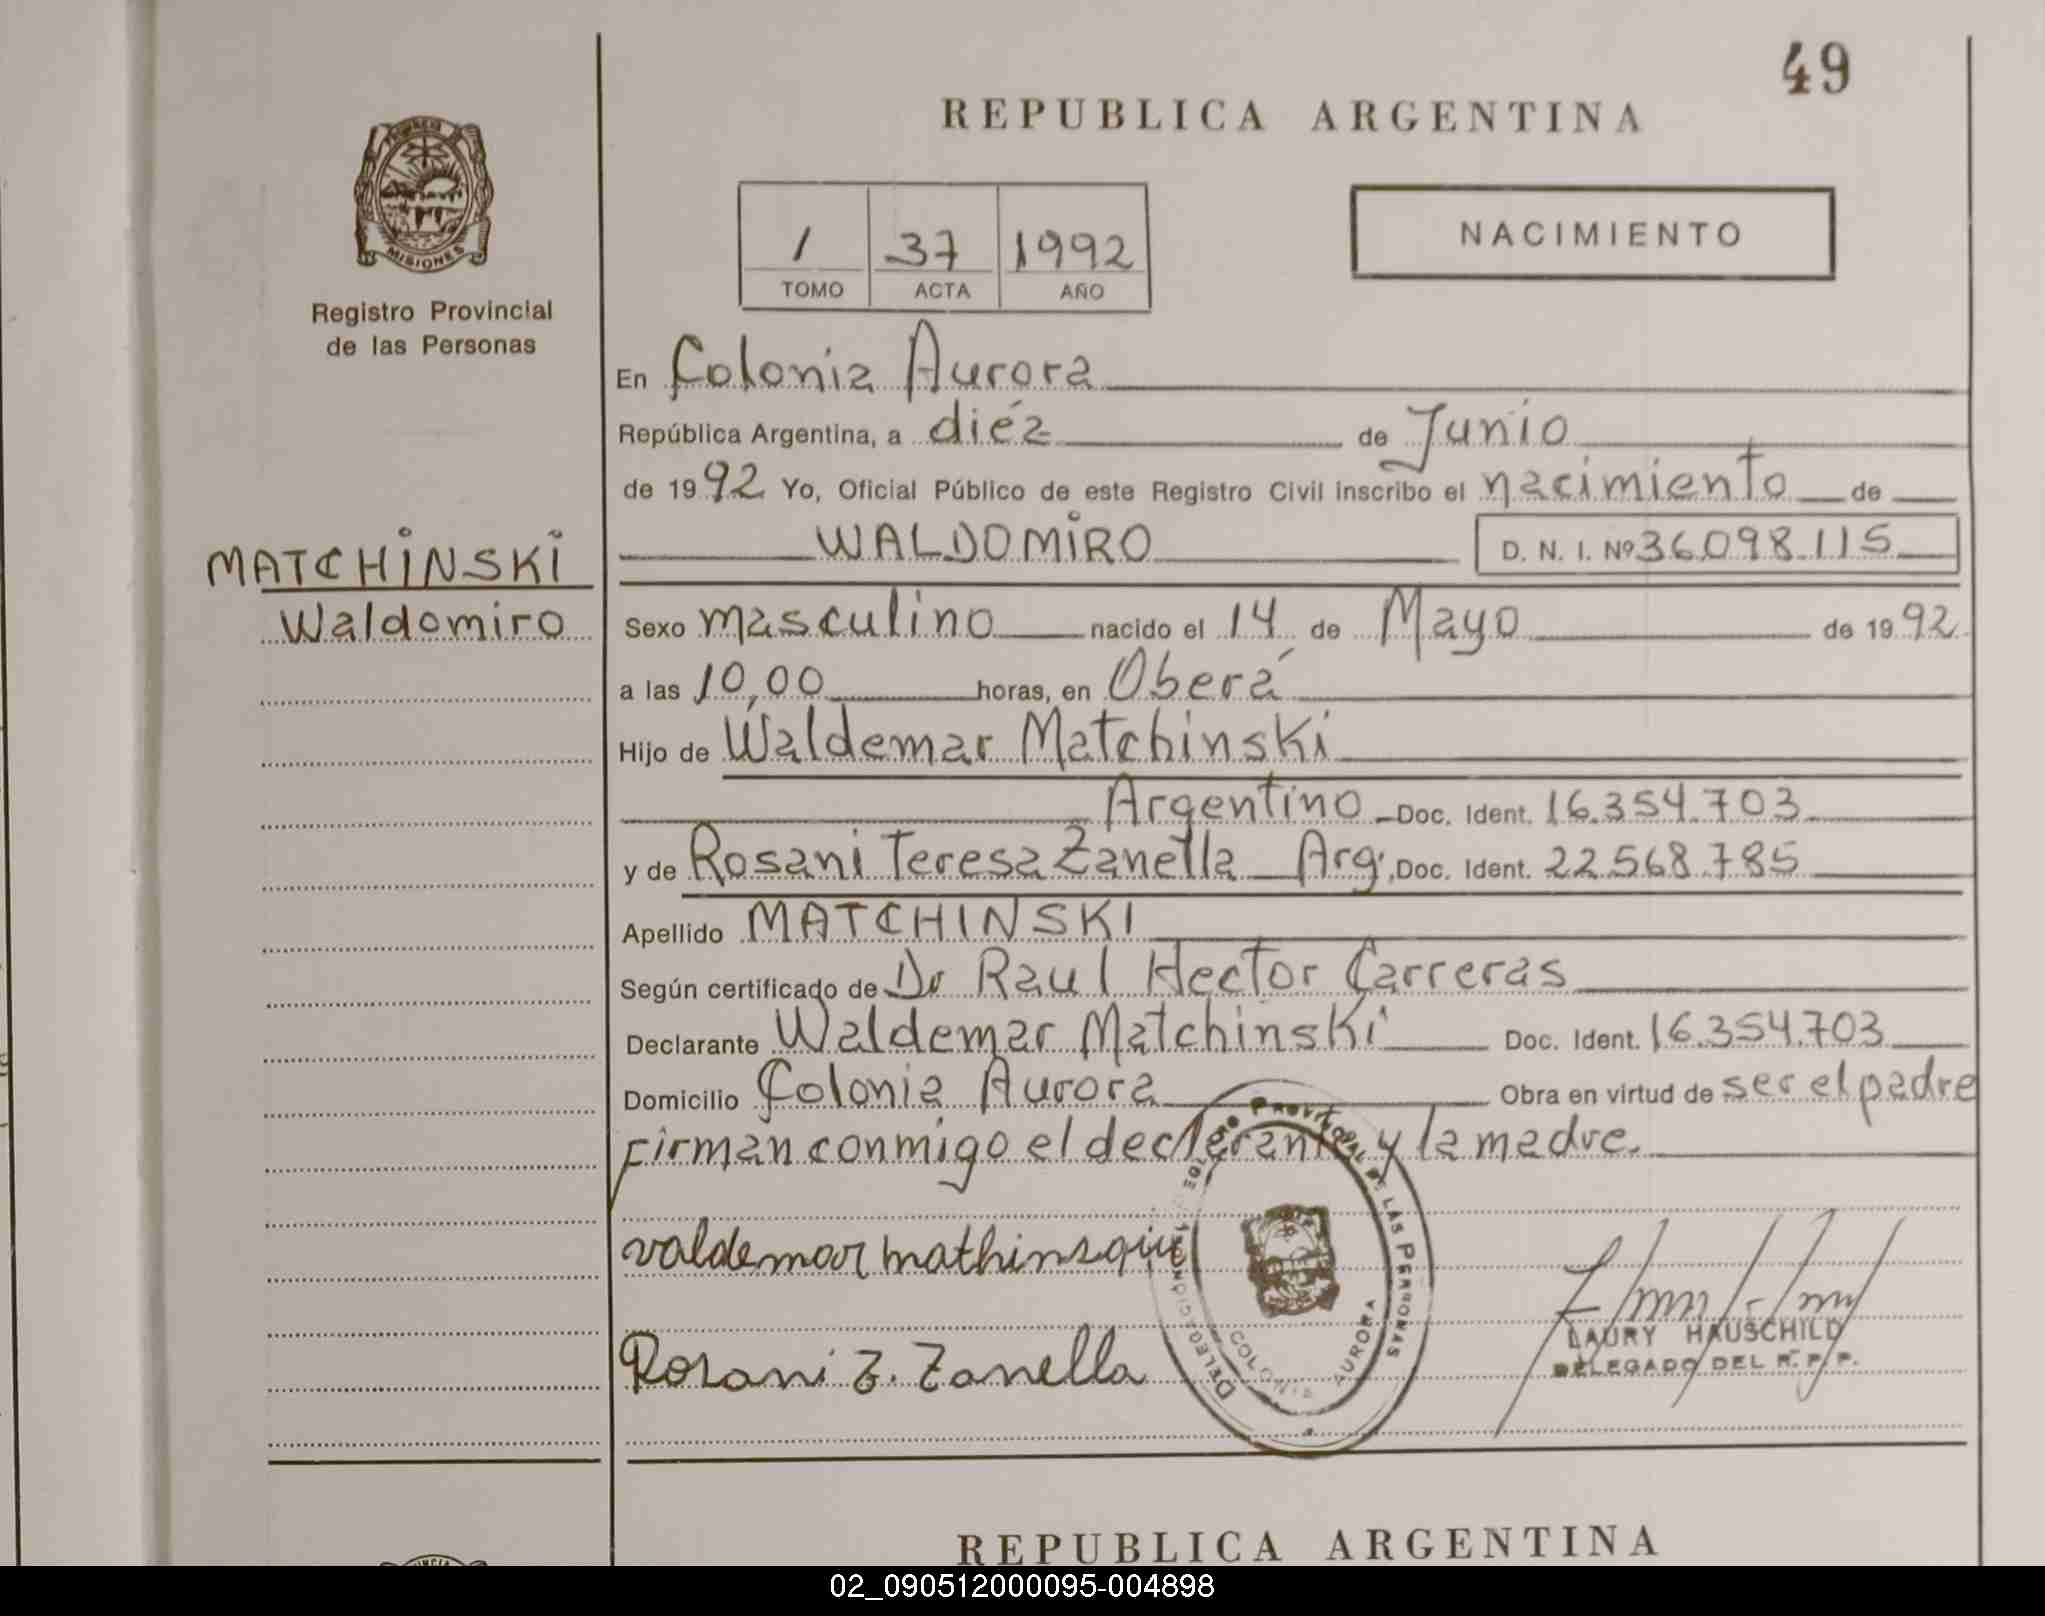 49
REPUBLICA ARGENTINA
PROVINCIA
MISIONES
Registro Provincial
de las Personas
1 37 1992
TOMO ACTA AÑO
NACIMIENTO
En Colonia Aurora
República Argentina, a diéz de Junio
de 1992 Yo, Oficial Público de este Registro Civil inscribo el nacimiento de
WALDOMiRO D. N. I. Nº 36.098.115
MATCHiNSKi
Waldomiro
Sexo masculino nacido el 14 de Mayo de 1992
a las 10,00 horas, en Oberá
Hijo de Waldemar Matchinski
Argentino Doc. Ident. 16.354.703
y de Rosani Teresa Zanella Arg. Doc. Ident. 22.568.785
Apellido MATCHINSKI
Según certificado de Dr Raul Hector Carreras
Declarante Waldemar Matchinski Doc. Ident. 16.354.703
Domicilio Colonia Aurora Obra en virtud de ser el padre
Firman conmigo el declarante y la madre.
valdemar mathinsqui
Rosani Z. Zanella
PROVINCIAL DE LAS PERSONAS
DELEGACIÓN
COLONIA AURORA
LAURY HAUSCHILD
DELEGADO DEL R. P. P.
REPUBLICA ARGENTINA
02_090512000095-004898